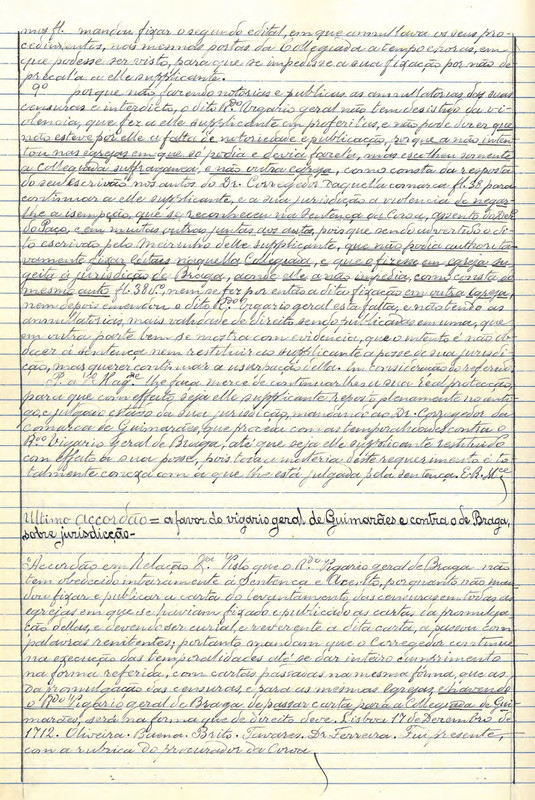 mo fl. mandou fixar o segundo edital, em que annullava os seus pro-
cedimentos, nas mesmas portas da Collegiada a tempo e horas, em
que podesse ser visto, para que se impedisse a sua fixação por não de
precala a elle supplicante.
9º porque não fazendo notorias e publicas as annullatorias das suas
censuras e interdicto, o dito R.do Vigario geral não tem desistido da vi-
olencia, que fez a elle supplicante em proferilas, e não pode dizer que
não esteve por elle a falta de notoriedade e publicação, porque a não inten-
tou nas egrejas em que só podia e devia fazela, mas escolheu somente
a Collegiada suffraganea, e não outra egreja, como consta da resposta
do seu escrivão nos autos do Dr. Corregedor daquella comarca fl. 38 para
continuar a elle supplicante, e a sua jurisdição a violencia de negar-
lhe a isempção, que se reconheceu na Sentença da Coroa, assento do Dez.
do Paço, e em muitas outras juntas aos autos, pois que sendo advertido o di-
to escrivão pelo Meirinho delle supplicante, que não podia authorita-
tivamente fixar Editaes naquella Collegiada, e que o fizesse em egreja su-
geita á jurisdição de Braga, aonde elle a não impedia, como consta do
mesmo auto fl. 38 v.º, nem se fez por então a dita fixação em outra egreja,
nem depois emendou o dito R.do Vigario geral esta falta, e não tendo as
annullatorias, mais validade de direito sendo publicadas em uma, que
em outra parte bem se mostra com evidencia, que o intento é não obe-
decer á sentença nem restituir ao supplicante a posse de sua jurisdi-
ção, mas querer continuar a usurpação della. Em consideração do referido
P. a V. Mag.de lhe faça merce de continuar-lhes a sua real protecção,
para que com effeito seja elle supplicante reposto plenamente no anti-
go, e julgado estado da sua jurisdição, mandando ao Dr. Corregedor da
comarca de Guimarães, que proceda com as temporalidades contra o
R.do Vigario Geral de Braga, até que seja elle supplicante restituido
com effeito á sua posse, pois toda a materia deste requerimento é to-
talmente conexa com a que lhe está julgada pela sentença. E. R. M.ce
Ultimo accordão = a favor do vigario geral de Guimarães e contra o de Braga,
sobre jurisdicção-
Accordão em Relação &.ª Visto que o R.do Vigario geral de Braga não
tem obedecido inteiramente á Sentença e Assento, porquanto não man-
dou fixar e publicar a carta do levantamento das censuras em todas as
egrejas em que se haviam fixado e publicado as cartas da promulga-
ção dellas, e devendo ser curial, e reverente a dita carta, a passou com
palavras renitentes; portanto mandam que o Corregedor continue
na execução das temporalidades até se dar inteiro cumprimento
na forma referida, com cartas passadas na mesma forma, que as
da promulgação das censuras, e para as mesmas egrejas, e havendo
o R.do Vigario geral de Braga de passar carta para a Collegiada de Gui-
marães, será na forma que de direito deve. Lisboa 17 de Dezembro de
1712. Oliveira. Baena. Brito. Tavares. Dr. Ferreira. Fui presente,
com a rubrica do Procurador da Coroa.